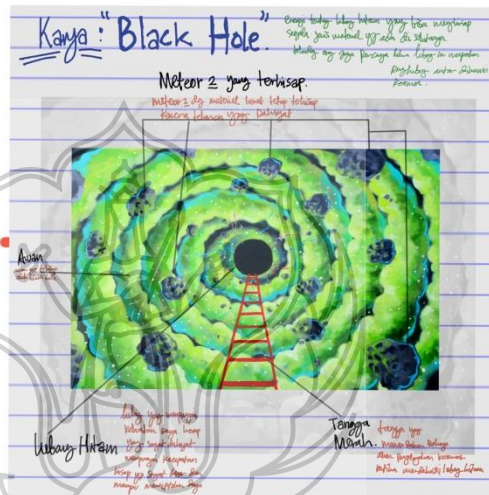 Karya : "Black Hole".
energi lubang hitam yang bisa menghisap
segala jenis material yg ada di sekitarnya
yg saya percaya bahwa lubang ini merupakan
penghubung antar dimensi
kosmos.
Meteor 2 yang terhisap.
Meteor 2 dg material berat tetap terhisap
karena tekanan yang dahsyat
Awan
Lubang Hitam
lubang yang mempunyai
kekuatan daya hisap
yang sangat dahsyat
mempunyai kecepatan
hisap yg sangat
mampu
Tangga
Merah.
tangga yg
menandakan bahwa
akan perjalanan kosmik
ketika mendekati lubang hitam